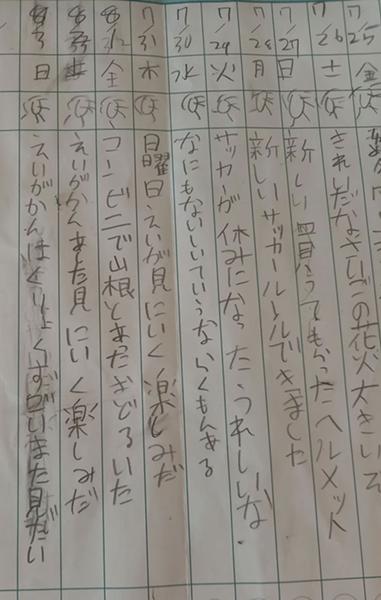 7/25 金
7/26 土 きれいだなさいごの花火大きいぞ
7/27 日 新しい買ってもらったヘルメット
7/28 月 新しいサッカールールできました
7/29 火 サッカーが休みになったうれしいな
7/30 水 なにもないしいていうならくもんある
7/31 木 日曜日えいが見にいく楽しみだ
8/ 金 コンビニで山根とあったおどろいた
えいがかんまた見にいく楽しみだ
8/3 日 えいがかんはくりょくすごいまた見たい